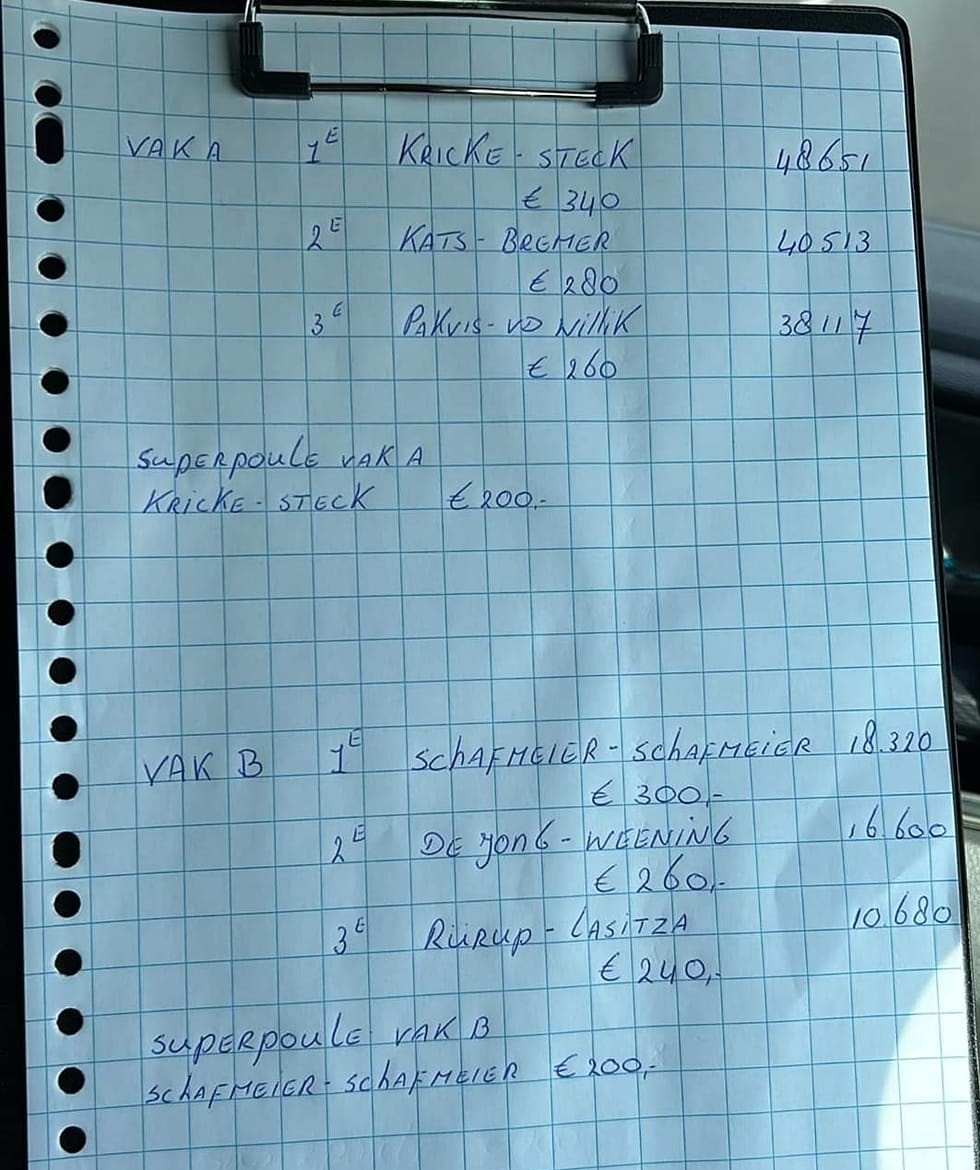 VAK A 1E KRICKE - STECK 48651
€ 340
2E KATS - BREMER 40513
€ 280
3E PAKVIS - VD WILLIK 38117
€ 260
SUPERPOULE VAK A
KRICKE - STECK € 200,-
VAK B 1E SCHAFMEIER - SCHAFMEIER 18.320
€ 300,-
2E DE JONG - WEENING 16.600
€ 260,-
3E RÜRUP - LASITZA 10.680
€ 240,-
SUPERPOULE VAK B
SCHAFMEIER - SCHAFMEIER € 200,-